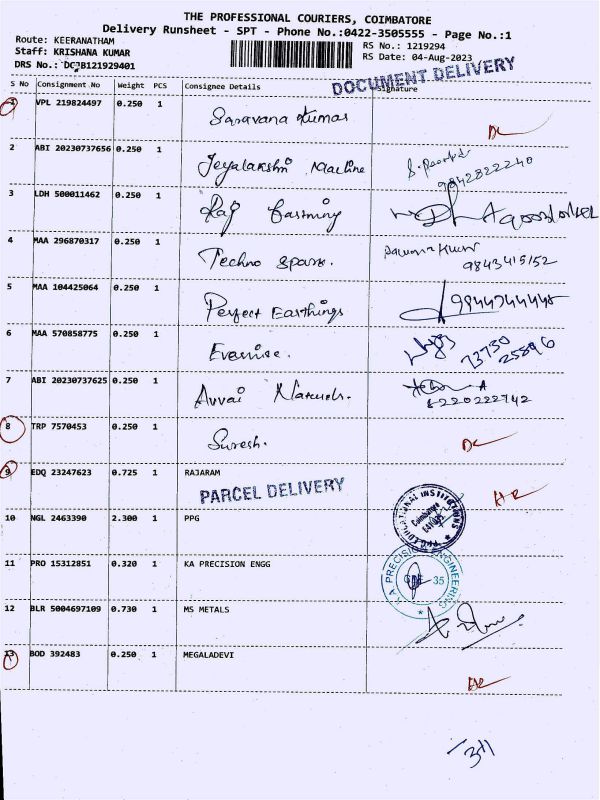 THE PROFESSIONAL COURIERS, COIMBATORE
Delivery Runsheet - SPT - Phone No.:0422-3505555 - Page No.:1
Route: KEERANATHAM
RS No.: 1219294
Staff: KRISHANA KUMAR
RS Date: 04-Aug-2023
DRS No.: DCJB121929401
DOCUMENT DELIVERY
S No Consignment No Weight PCS Consignee Details Signature
1 VPL 219824497 0.250 1 Saravana Kumar DL
2 ABI 20230737656 0.250 1 Jeyalakshmi Machine 9842822240
3 LDH 500011462 0.250 1 Raj Earthing
4 MAA 296870317 0.250 1 Techno Spark. 9843415152
5 MAA 104425064 0.250 1 Perfect Earthings
6 MAA 570858775 0.250 1 73730 25896
7 ABI 20230737625 0.250 1 Avvai 8220222742
8 TRP 7570453 0.250 1 Suresh. DL
9 EDQ 23247623 0.725 1 RAJARAM
PARCEL DELIVERY
10 NGL 2463390 2.300 1 PPG
P.P.G. EDUCATIONAL INSTITUTIONS
Coimbatore
641035
11 PRO 15312851 0.320 1 KA PRECISION ENGG
K A PRECISION ENGINEERING
CBE 35
12 BLR 5004697109 0.730 1 MS METALS
13 BOD 392483 0.250 1 MEGALADEVI